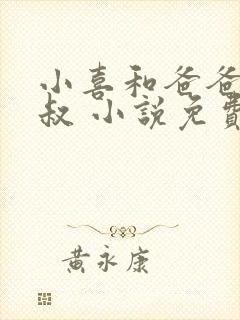 小喜和爸爸
叔 小說免費
黃永康